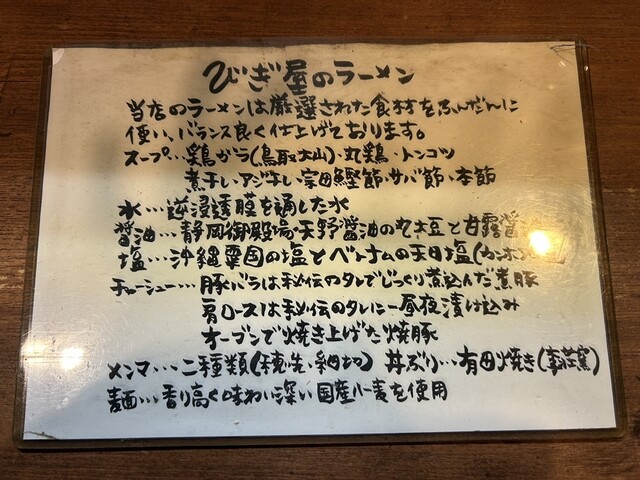 びぎ屋のラーメン
当店のラーメンは厳選された食材をふんだんに
使い、バランス良く仕上げております。
スープ…鶏がら(鳥取大山)・丸鶏・トンコツ
煮干し・アジ干し・宗田鰹節・サバ節・本節
水…逆浸透膜を通した水
醤油…静岡御殿場・天野醤油の丸大豆と甘露醤
塩…沖縄粟国の塩とベトナムの天日塩(カンホア
チャーシュー…豚バラは秘伝のタレでじっくり煮込んだ煮豚
肩ロースは秘伝のタレに一昼夜漬け込み
オーブンで焼き上げた焼豚
メンマ…二種類(穂先・細切) 丼ぶり…有田焼き(李荘窯)
麺…香り高く味わい深い国産小麦を使用